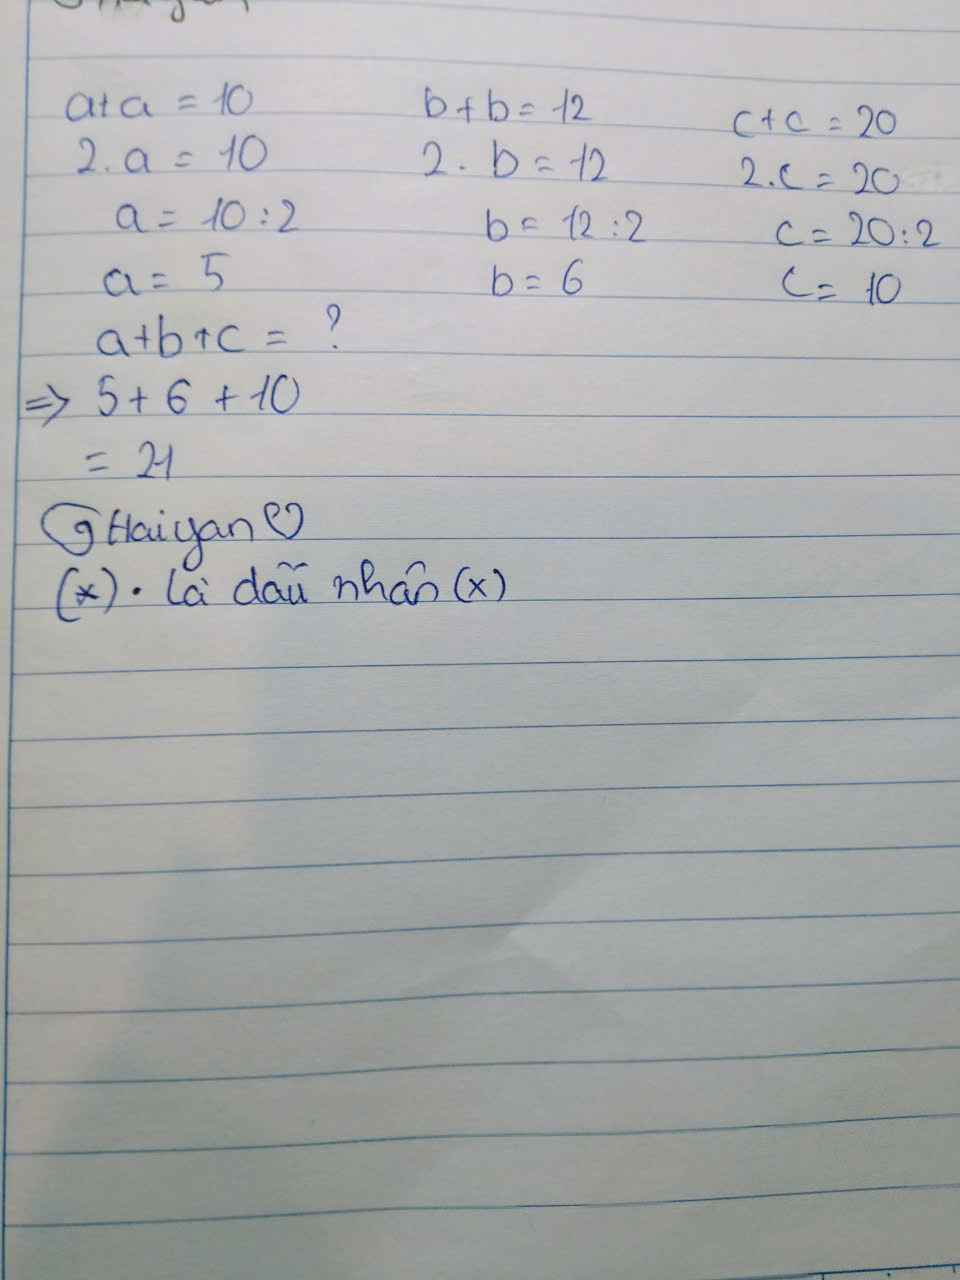 a+a = 10
2.a = 10
a = 10:2
a = 5
b+b = 12
2. b = 12
b = 12:2
b = 6
c+c = 20
2.c = 20
c = 20:2
c = 10
a+b+c = ?
=> 5+6+10
= 21
Haiyan♡
(*). là dấu nhân (x)